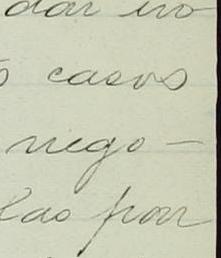 dar no
casos
nego-
las por